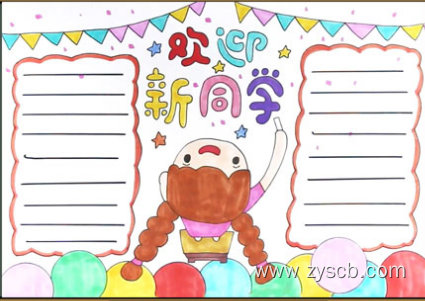 欢迎
新同学
www.zyscb.com